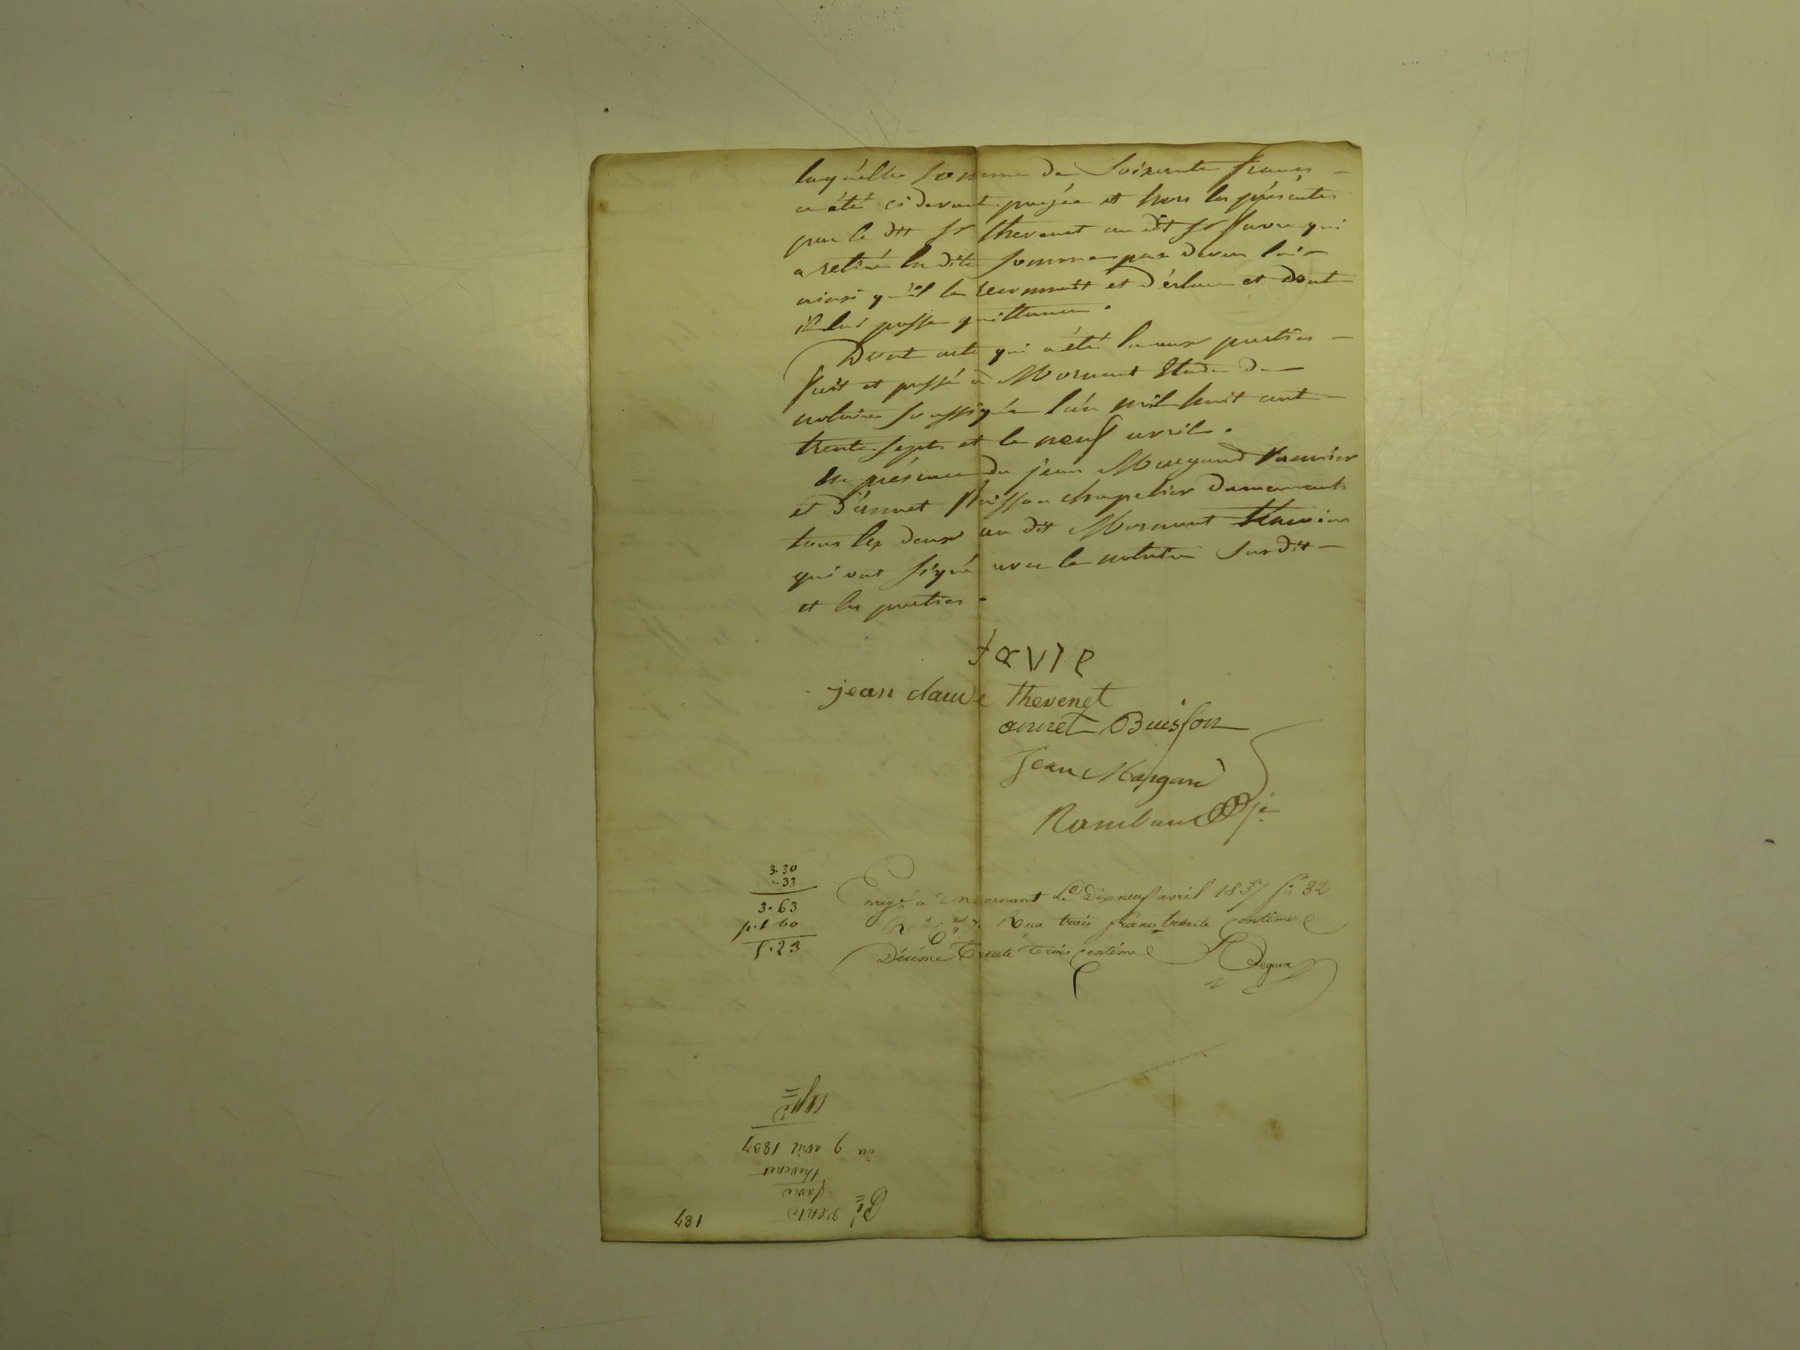 laquelle somme de Soixante francs –
a été ci devant payée et hors les présentes
par le dit Sr thevenet au dit Sr favre qui
a retiré la dite somme par devers lui –
ainsi qu'il le reconnait et déclare et dont
il lui passe quittance.
Dont acte qui a été lu aux parties –
fait et passé à Mornant Etude du
notaire soussigné l'an mil huit cent –
trente sept et le neuf avril.
En présence de jean Margand Vannier
et d'annet Buisson chapelier demeurants
tous les deux au dit Mornant témoins
qui ont signé avec le notaire susdit –
et les parties.
favre
jean claude thevenet
annet Buisson
Jean Margand
Rambaud
3.30
.33
3.63
p.t 1.60
5.23
Enregé à mornant Le Dix neuf avril 1837 fo 32
Reçu trois francs trente centimes
Décime trente trois centimes
Vente
favre
thevenet
du 9 avril 1837
137